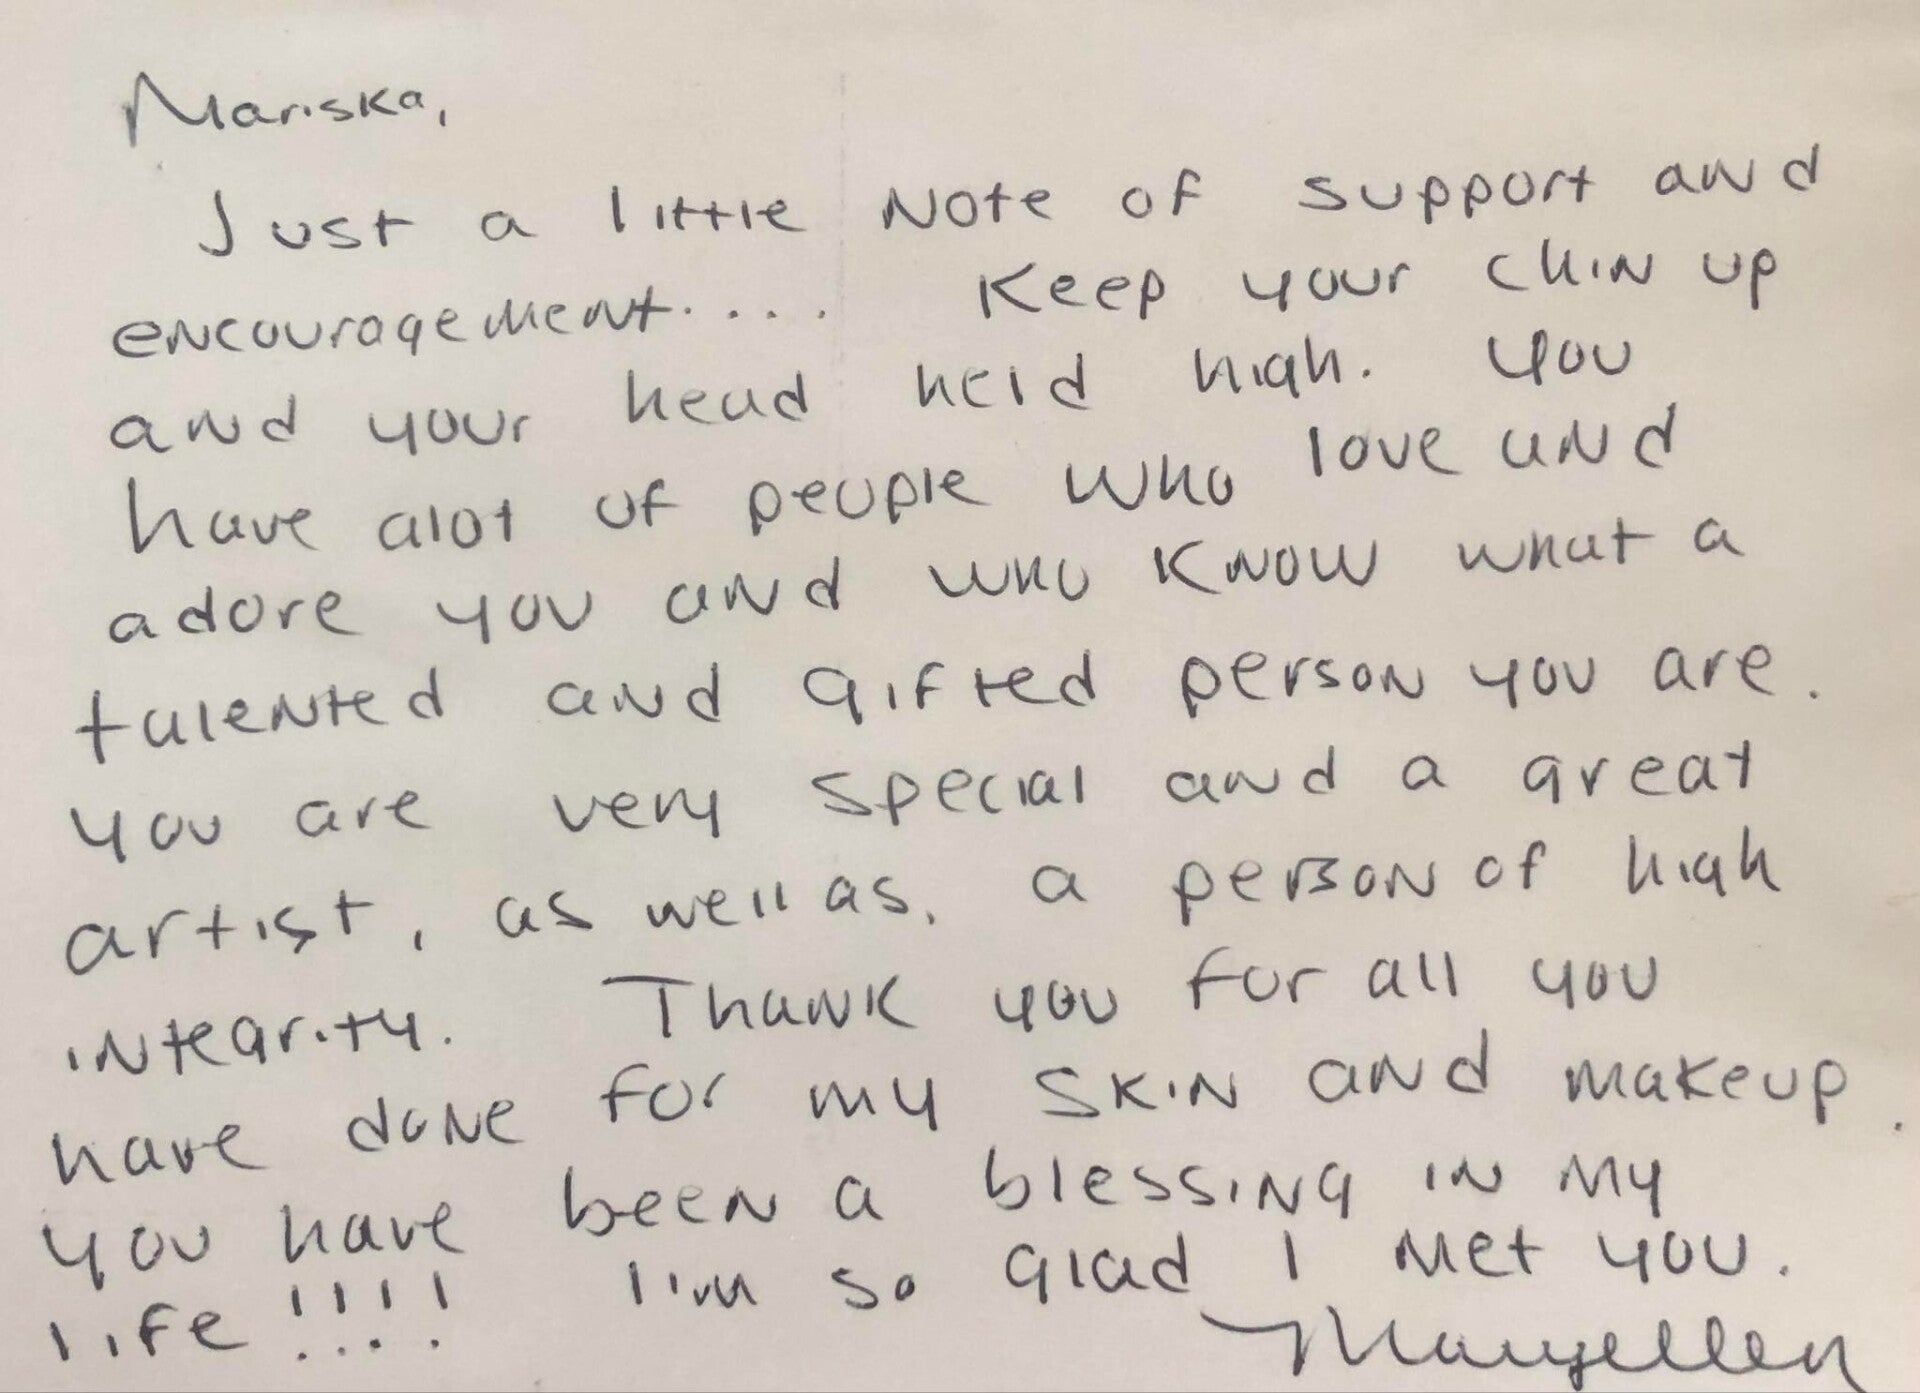 Mariska,
Just a little Note of support and
encouragement.... Keep your chin up
and your head held high. You
have alot of people who love and
adore you and who know what a
talented and gifted person you are.
you are very special and a great
artist, as well as, a person of high
integrity. Thank you for all you
have done for my skin and makeup.
you have been a blessing in my
life!!!! I'm so glad I met you.
Maryellen